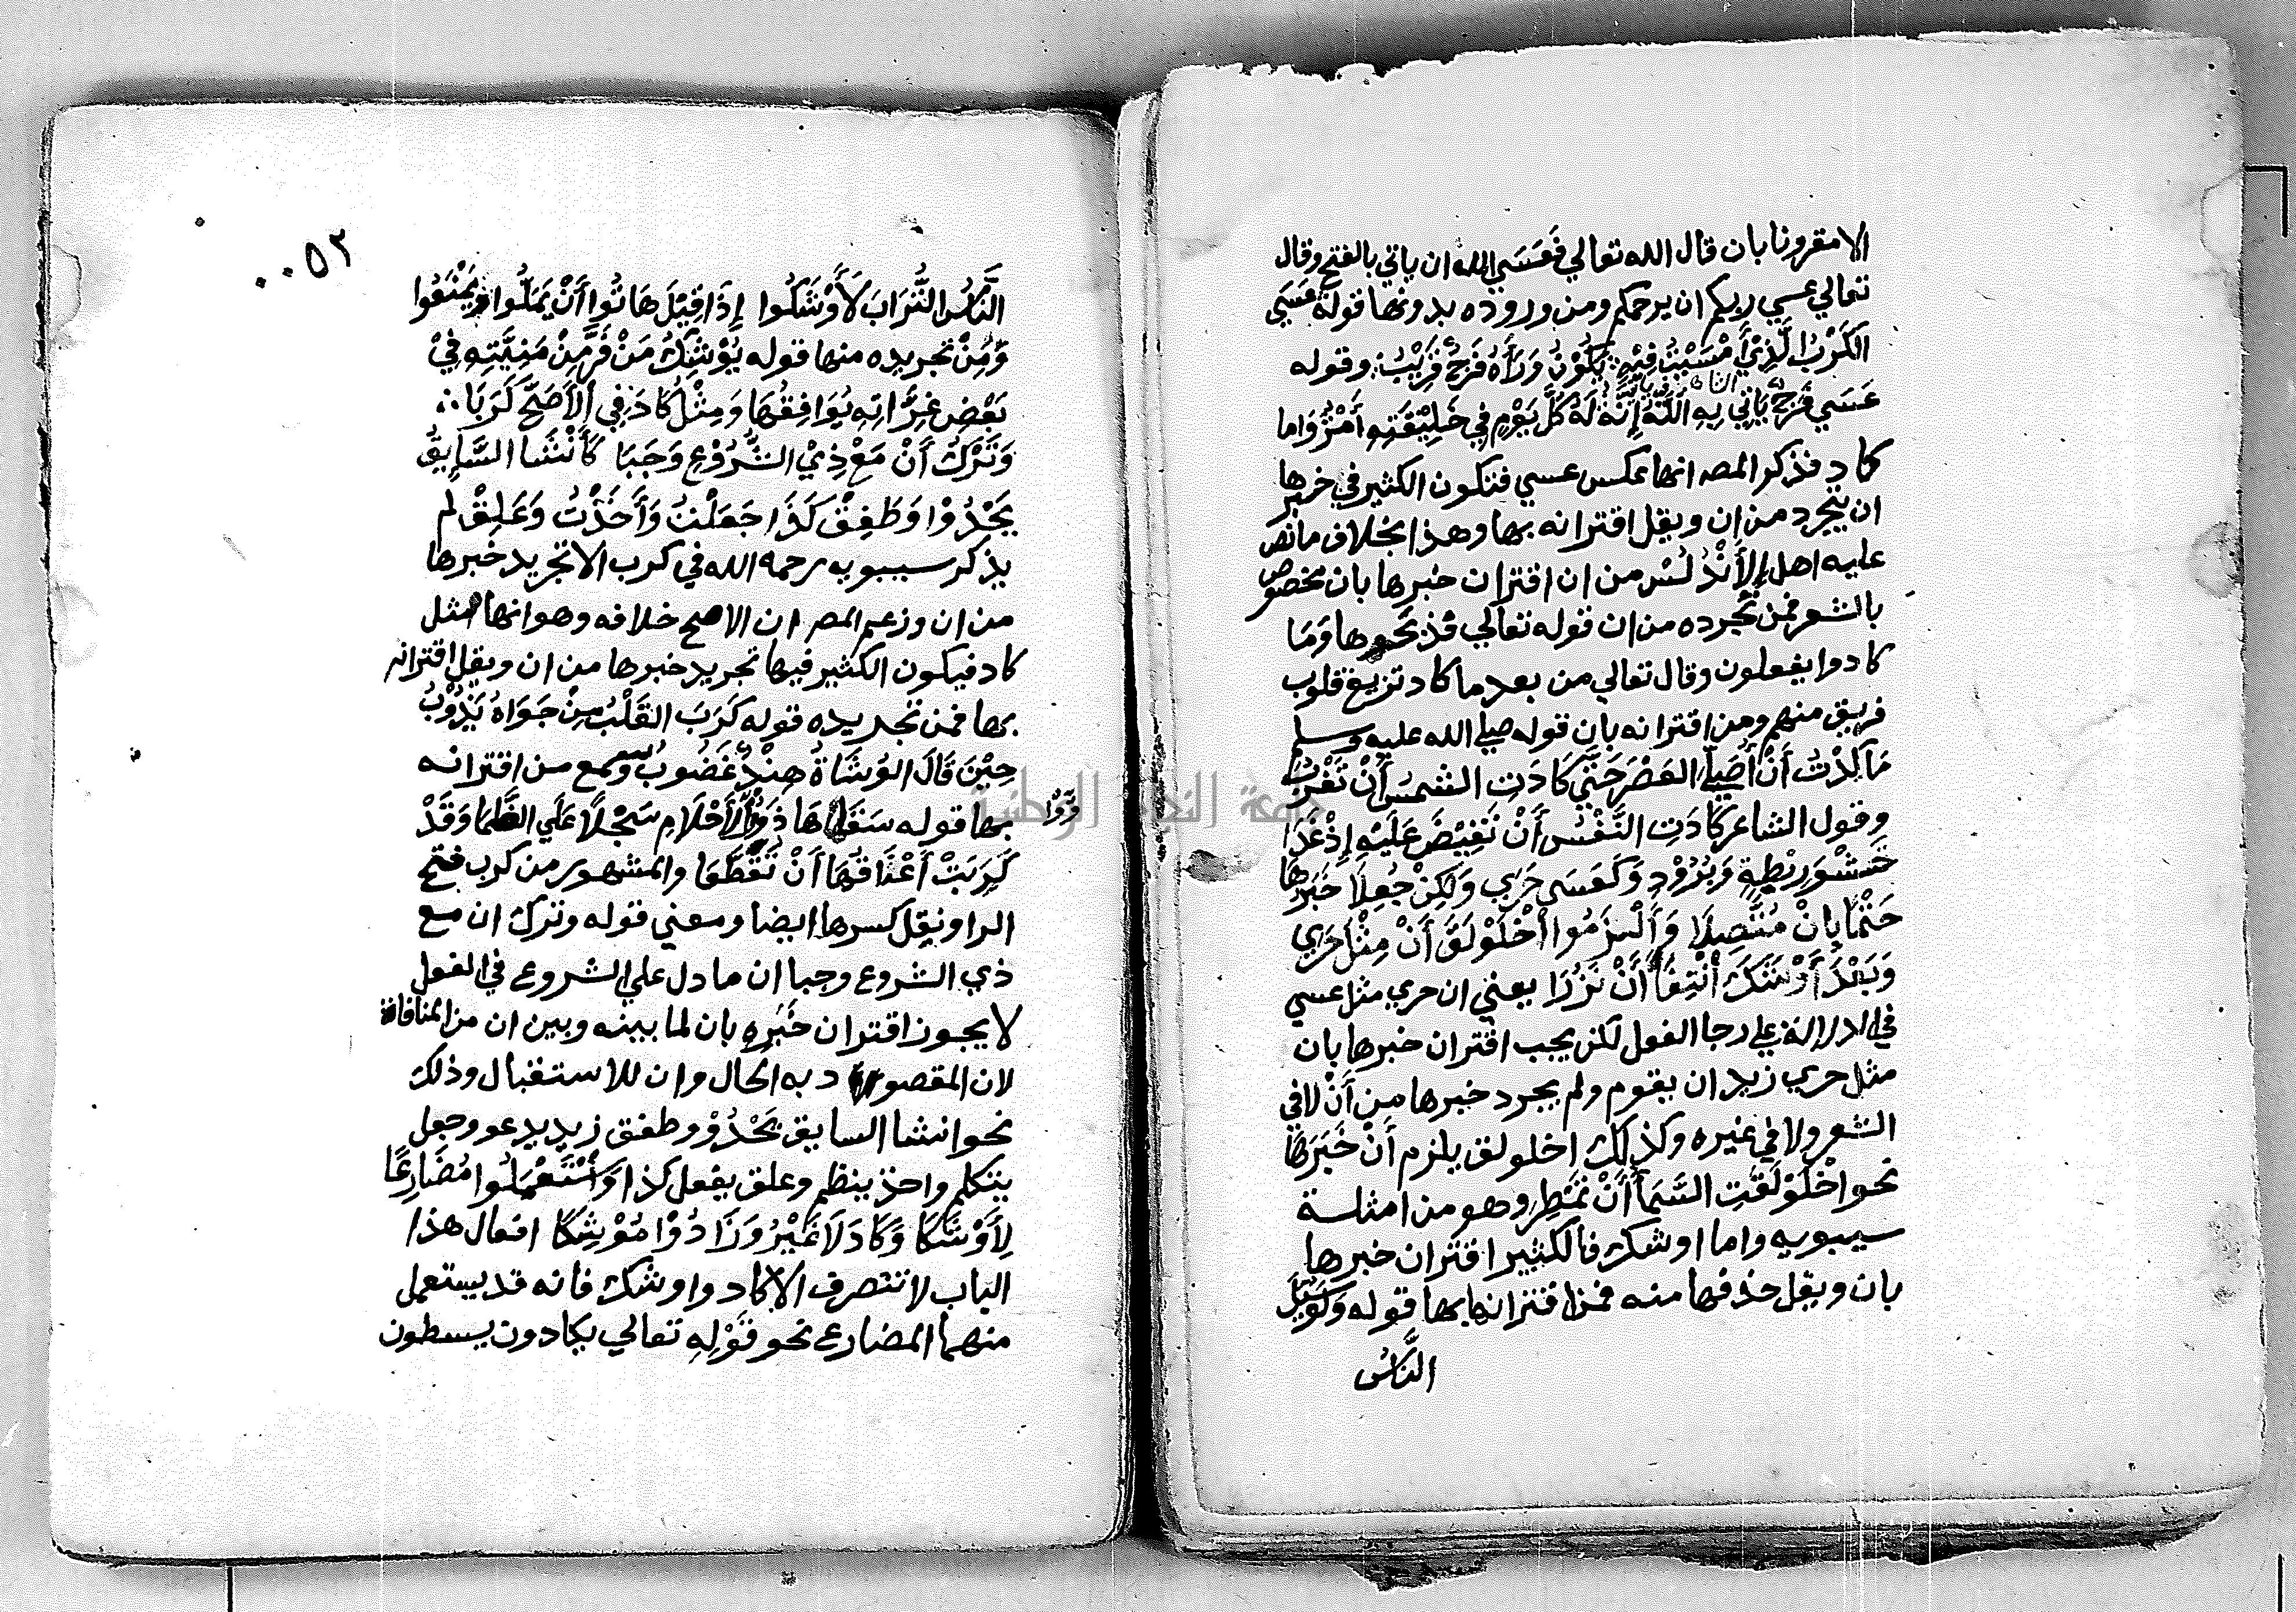 الامقرونا بان قال الله تعالي فَعَسَي الله ان ياتي بالفتح وقال
تعالي عسي ربكم ان يرحمكم ومن وروده بدونها قوله عَسَي
الكَرْبُ الَّذِيْ أَمْسَيْتُ فِيْهِ يَكُوْنُ وَرَأَهُ فَرَجٌ قَرِيْبٌ وقوله
عَسَي فَرَجٌ يَاتِي بِهِ اللهُ إِنَّهُ لَهُ كُلَّ يَوْمٍ فِي خَلِيْقَتِهِ أَمْرُ واما
كاد فذكر المصـ انها عكس عسي فتكون الكثير في خبرها
ان يتجرد من ان ويقل اقترانه بها وهذا بخلاف ما نص
عليه اهل الأَنْدُلُس من ان اقتران خبرها بان مخصوص
بالشعر فمن تجرده من ان قوله تعالي فذبحوها وَمَا
كادوا يفعلون وقال تعالي من بعد ما كاد تزيغ قلوب
فريق منهم ومن اقترانه بان قوله صلي الله عليه وسلم
مَا كِدْتُ أَنْ أُصَلِّي العَصْرَ حَتَّي كَادَتِ الشمسُ أَنْ تَغْرُبَ
وقول الشاعر كَادَتِ النَّفْسُ أَنْ تَفِيْضَ عَلَيْهِ إِذْ غَدَا
حَشْوَ رَيْطَةٍ وَبُرُوْدِ وَكَعَسَي حَرَي وَلَكِنْ جُعِلَا خَبَرُهَا
حَتْمًا بِأَنْ مُتَّصِلَا وَأَلْزَمُوا اخْلَوْلَقَ أَنْ مِثْلَ حَرَي
وَبَعْدَ أَوْشَكَ انْتِفَا أَنْ نَزُرَا يعني ان حري مثل عسي
في الدلالة علي رجا الفعل لكن يجب اقتران خبرها بان
مثل حري زيد ان يقوم ولم يجرد خبرها مِن أَنْ لا في
الشعر ولا في غيره وكذلك اخلولق يلزم أَنْ خَبَرَهَا
نحو اخْلَوْلَقَتِ السَّمَأُ أَنْ تَمْطِر وهو من امثلة
سيبويه واما اوشك فالكثير اقتران خبرها
بان ويقل حذفها منه فمن اقترانها بها قوله وَلَوْ سُئِلَ
النَّاسُ
٠٠٥٢
النَّاسُ التُّرَابَ لَأَوْشَكُوا إِذَا قِيْلَ هَاتُوا أَنْ يَمَلُّوا وَيَمْنَعُوا
وَمِنْ تجريده منها قوله يُوْشِكُ مَنْ فَرَّ مِنْ مَنِيَّتِهِ فِيْ
بَعْضِ غِرَّاتِهِ يُوَافِقُهَا وَمِثْلُ كَادَ فِي الأَصَحِّ كَرَبَا
وَتَرْكُ أَنْ مَعْ ذِيْ الشُّرُوْعِ وَجَبَا كَأَنْشَأَ السَّايِقُ
يَحْدُوْا وَطَفِقْ كَذَا جَعَلْتُ وَأَخَذْتُ وَعَلِقْ لم
يذكر سيبويه رحمه الله في كرب الا تجريد خبرها
من ان وزعم المصـ ان الاصح خلافه وهو انها مثل
كاد فيكون الكثير فيها تجريد خبرها من ان ويقل اقترانه
بها فمن تجريده قوله كَرَبَ القَلْبُ مِنْ جَوَاهُ يَذُوْبُ
حِيْنَ قَالَ الوُشَاةُ هِنْدٌ غَضُوبُ وسمع من اقترانه
بها قوله سَقَاهَا ذَوُو الأَحْلَامِ سَجْلًا عَلَي الظَّمَا وَقَدْ
كَرِبَتْ أَعْنَاقُهَا أَنْ تَقَطَّعَا والمشهور من كرب فتح
الرا ونقل كسرها ايضا ومعني قوله وترك ان مع
ذي الشروع وجبا ان ما دل علي الشروع في الفعل
لا يجوز اقتران خَبَرِهِ بان لما بينه وبين ان من المنافاة
لان المقصود به الحال وان للاستقبال وذلك
نحو انشا السايق يَحْدُوْ وطفق زيد يدعو وجعل
يتكلم واخذ ينظم وعلق يفعل كذا وَاسْتَعْمَلُوا مُضَارِعًا
لِأَوْشَكَا وَكَادَ لَا غَيْرُ وَزَادُوْا مُوْشِكَا افعال هذا
الباب لا تتصرف الا كاد واوشك فانه قد يستعمل
منهما المضارع نحو قَوْلِهِ تعالي يكادون يسطون